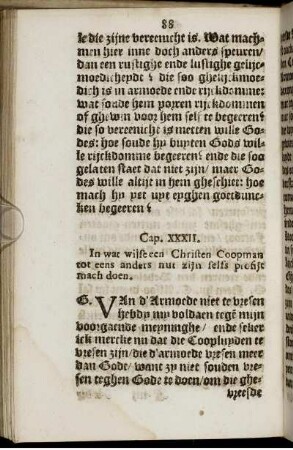 88
le die zijne vereenicht is. Wat mach-
men hier inne doch anders speuren/
dan een rustighe ende lustighe gelijc-
moedicheydt? die soo ghelijckmoe-
dich is in armoede ende rijckdomme:
wat soude hem porren rijckdommen
of ghewin voor hem self te begeeren?
die so vereenicht is metten wille Go-
des: hoe soude hy buyten Gods wil-
le rijckdomme begeeren? ende die soo
gelaten staet dat niet zijn/ maer Go-
des wille altijt in hem gheschiet: hoe
mach hy yet uyt eyghen goetdunc-
ken begeeren?
Cap. XXXII.
In wat wijse een Christen Coopman
tot eens anders nut zijn selfs profijt
mach doen.
G. VAn d'Armoede niet te vresen
hebdy mu voldaen tegē mijn
voorgaende meyninghe/ ende seker
ick mercke nu dat die Coopluyden te
vresen zijn/ die d'armoede vresen meer
dan Godt/ want zy niet souden vre-
sen teghen Gode te doen/ om die ghe-
vreesde